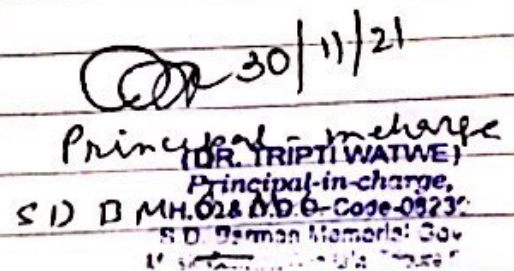 30/11/21
Principal-incharge
(DR. TRIPTI WATWE)
Principal-in-charge,
S D B MH.028 D.D.O-Code-0923
S D Barman Memorial Gov